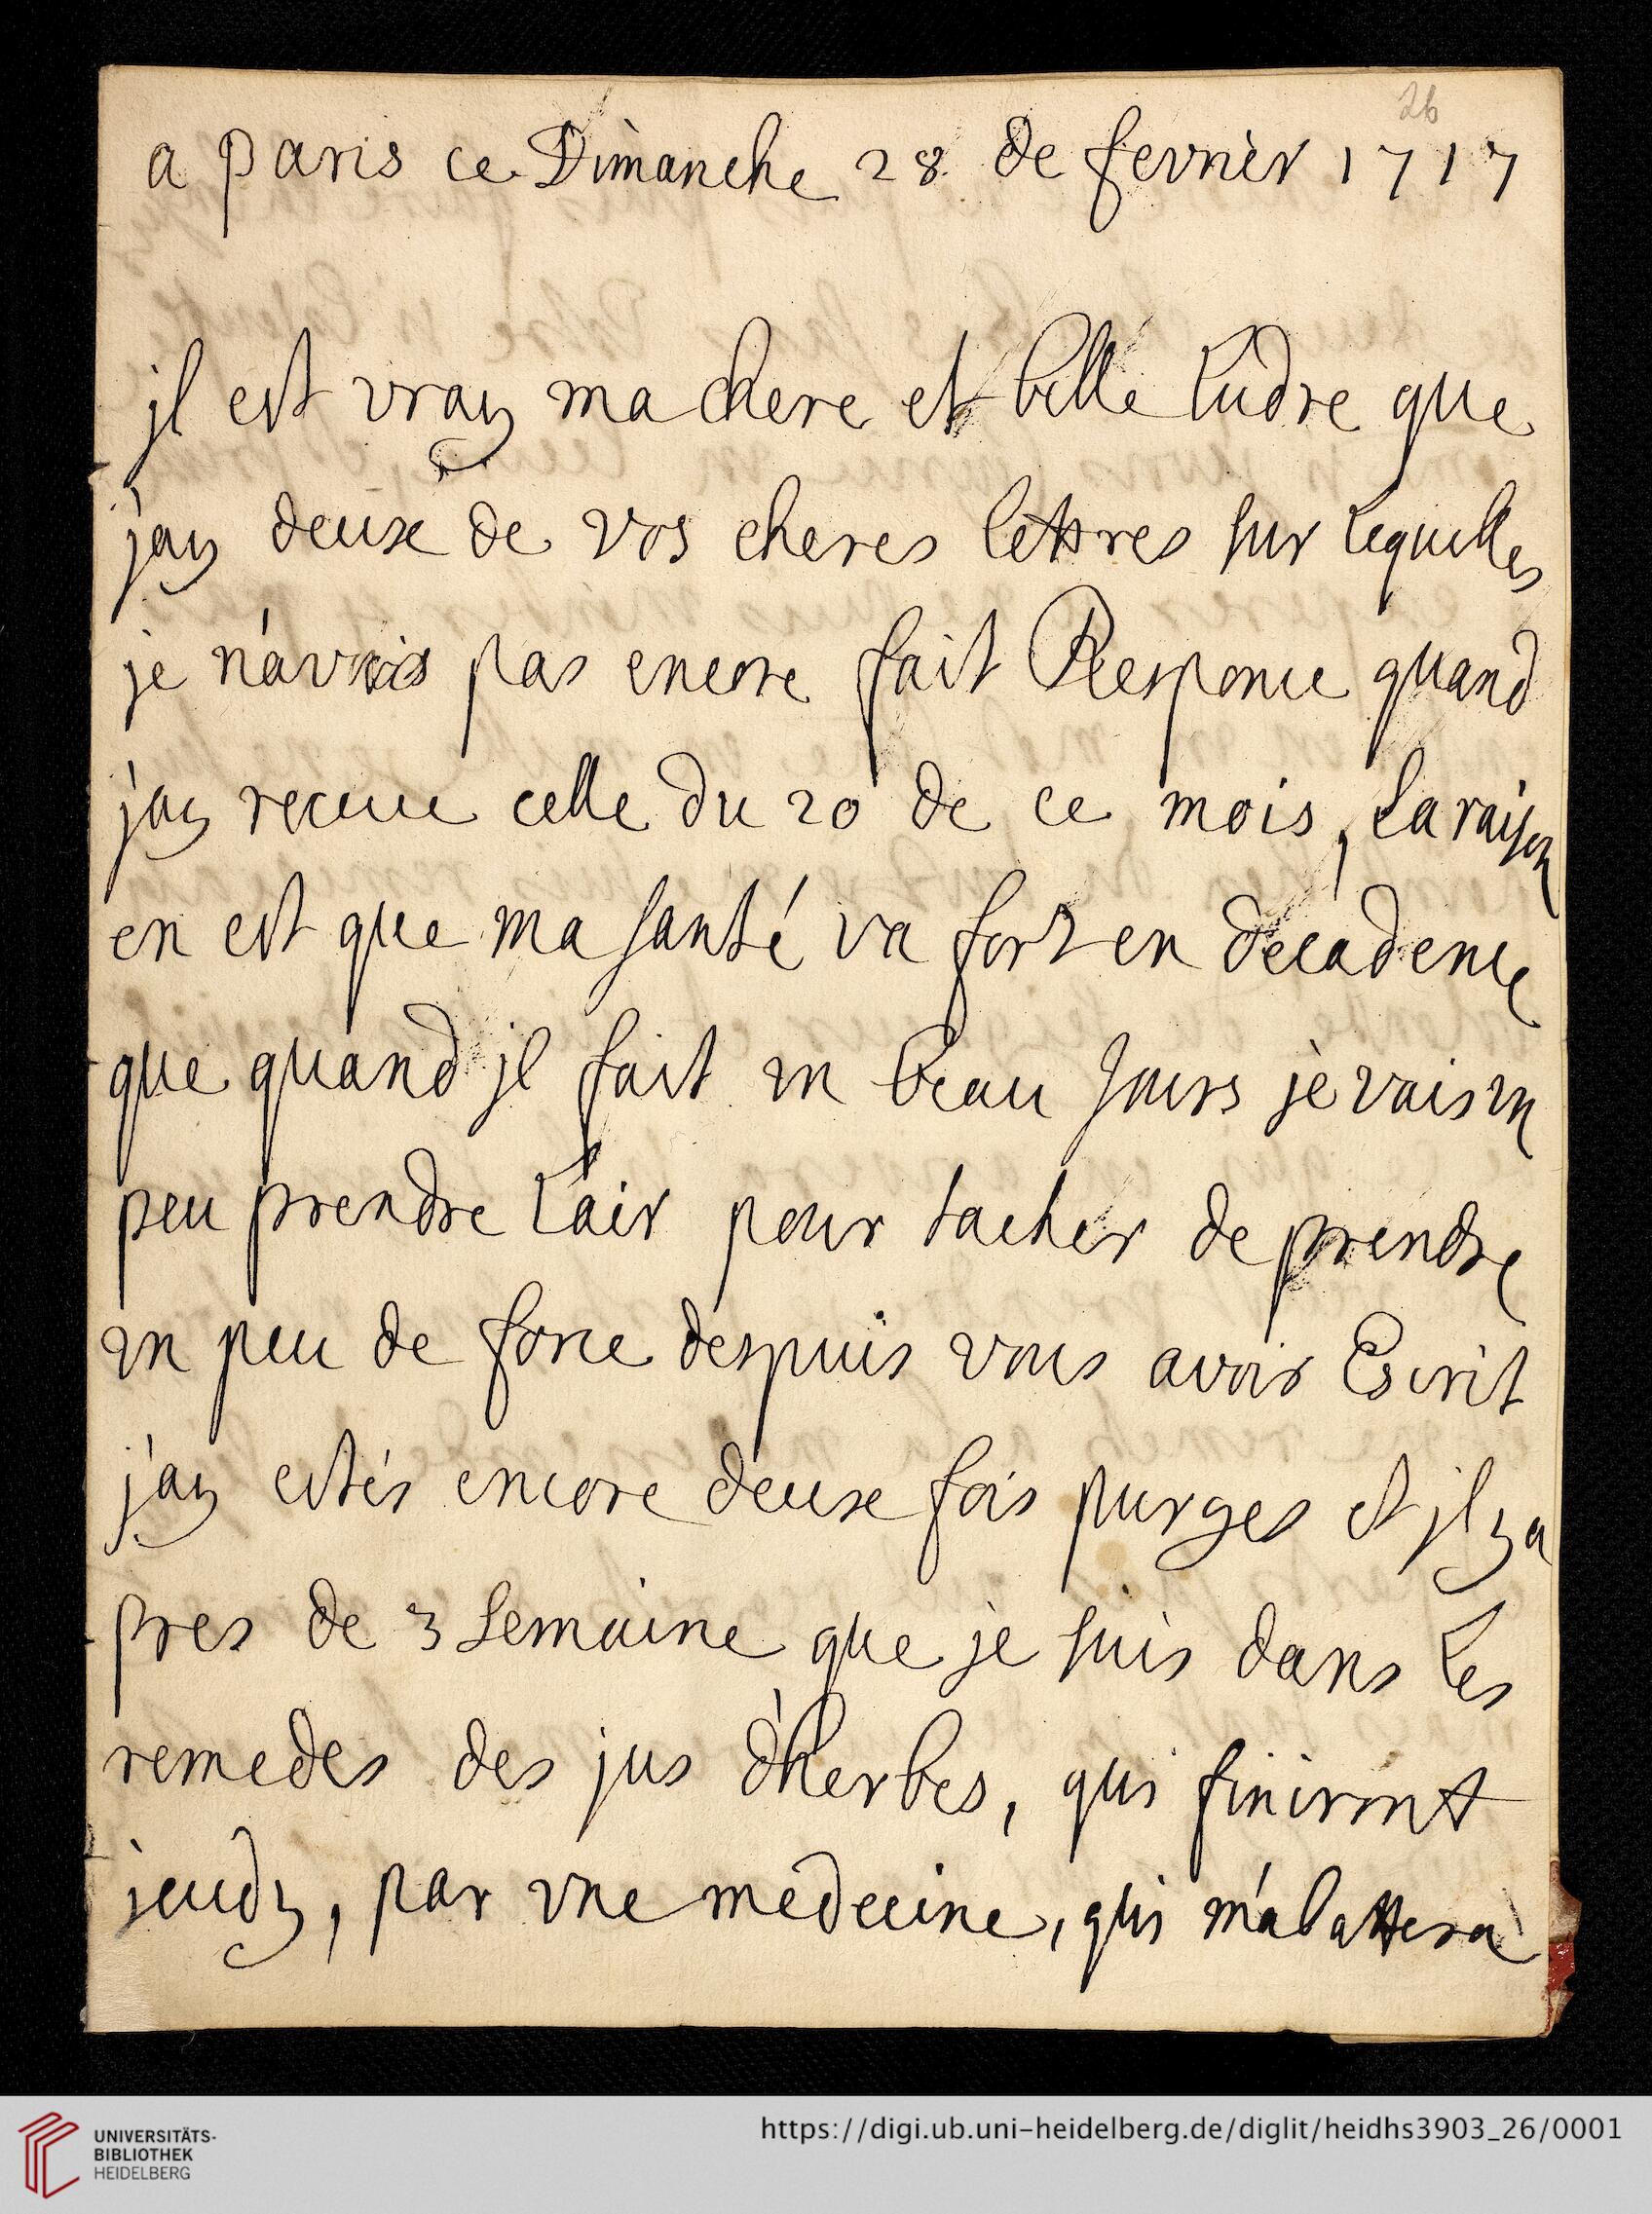 26
a paris ce Dimanche 28 de fevrier 1717
jl est vray ma chere et belle Ludre que
jay deuxe de vos cheres lettres sur lequelles
je n'avois pas encore fait Responce quand
j'ay receue celle du 20 de ce mois, la raison
en est que ma santé va fort en decadence
que quand jl fait un beau Jours je vais un
peu prendre l'air pour tacher de prendre
un peu de force despuis vous avoir Escrit
j'ay estés encore deuxe fois purges et jl y a
pres de 3 semaine que je suis dans les
remedes des jus d'herbes, qui finiront
jeudy, par une medecine, qui m'abattera
UNIVERSITÄTS-
BIBLIOTHEK
HEIDELBERG
https://digi.ub.uni-heidelberg.de/diglit/heidhs3903_26/0001